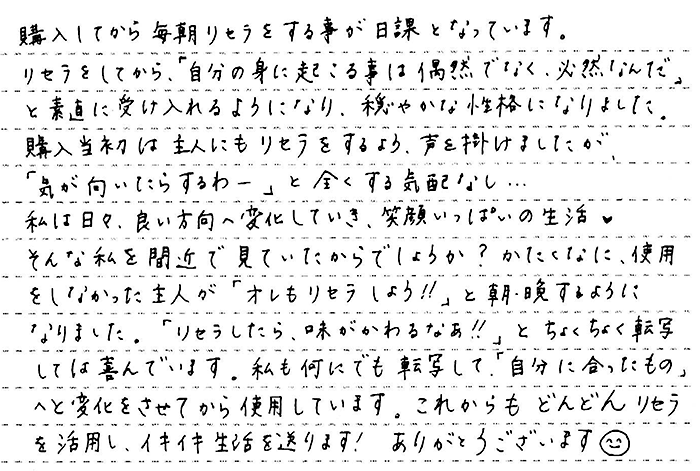 購入してから毎朝リセラをする事が日課となっています。
リセラをしてから、「自分の身に起こる事は偶然でなく、必然なんだ」
と素直に受け入れるようになり、穏やかな性格になりました。
購入当初は主人にもリセラをするよう、声を掛けましたが、
「気が向いたらするわー」と全くする気配なし…
私は日々、良い方向へ変化していき、笑顔いっぱいの生活♥
そんな私を間近で見ていたからでしょうか?かたくなに、使用
をしなかった主人が「オレもリセラしよう!!」と朝・晩するように
なりました。「リセラしたら、味がかわるなぁ!!」とちょくちょく転写
しては喜んでいます。私も何にでも転写して、「自分に合ったもの」
へと変化をさせてから使用しています。これからもどんどんリセラ
を活用し、イキイキ生活を送ります!ありがとうございます☺